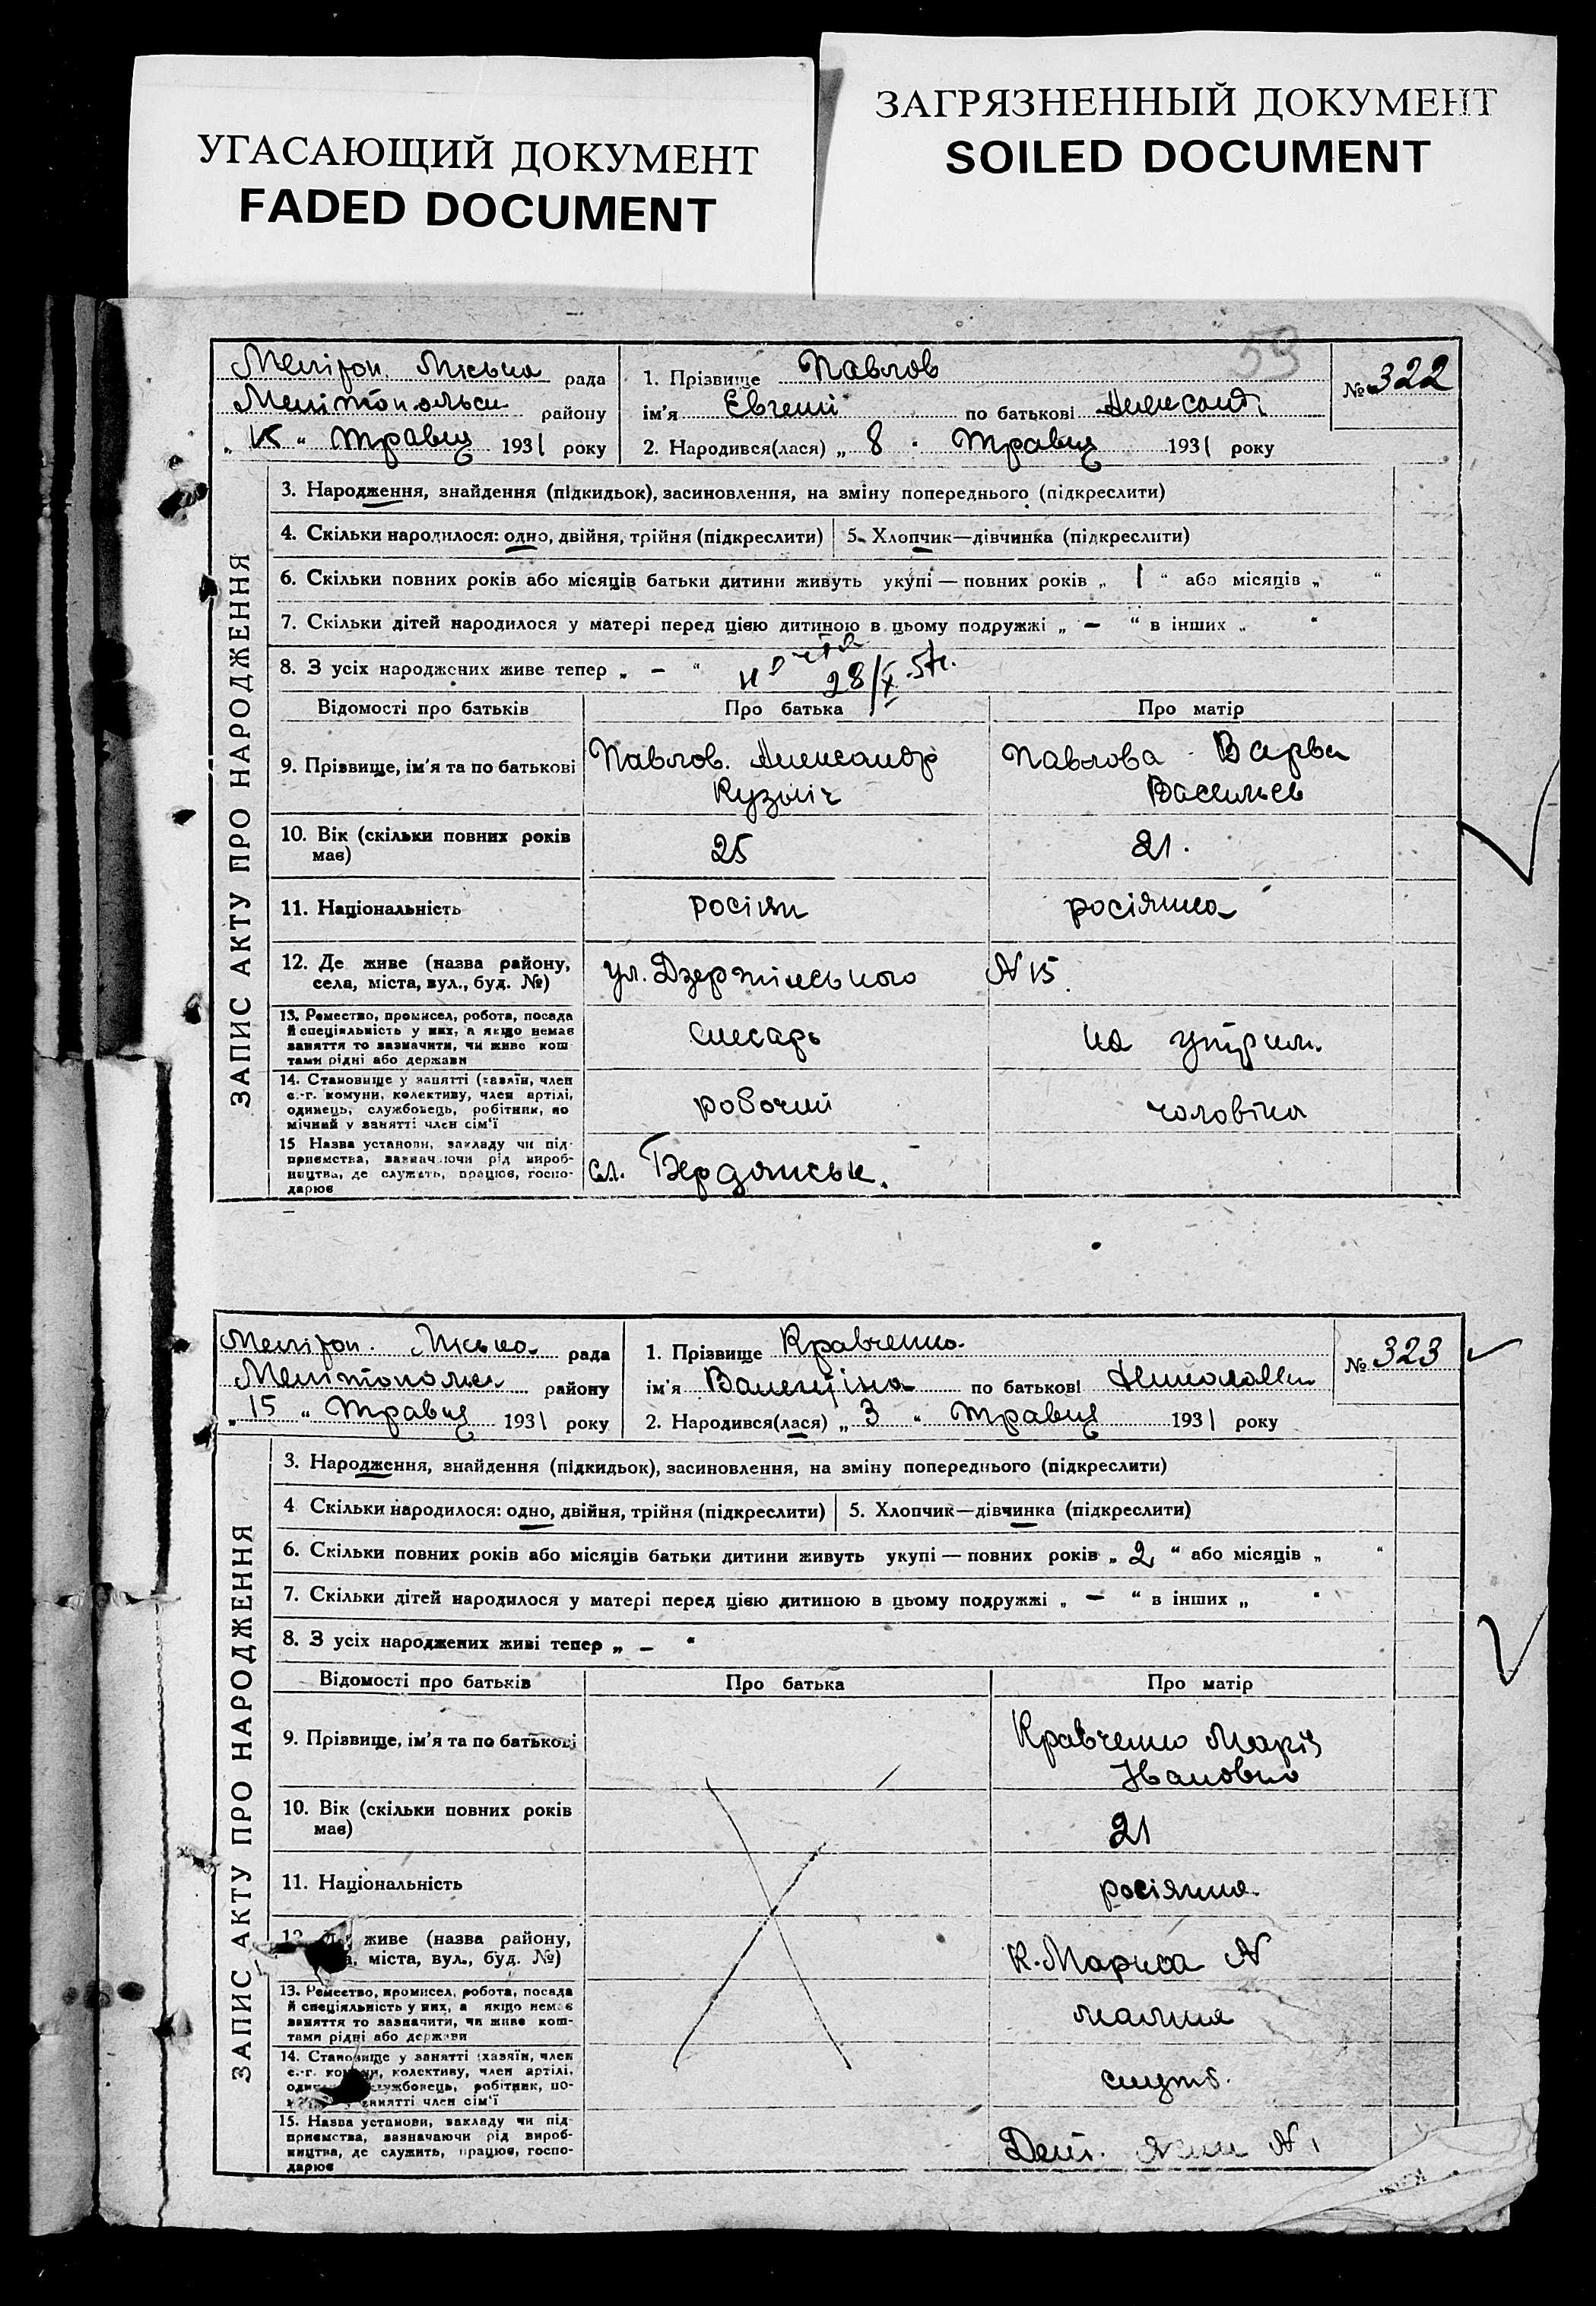 УГАСАЮЩИЙ ДОКУМЕНТ
FADED DOCUMENT
ЗАГРЯЗНЕННЫЙ ДОКУМЕНТ
SOILED DOCUMENT
59
Мелітоп. Міська рада
Мелітопольськ району
„15“ Травня 1931 року
1. Прізвище Павлов
ім'я Евгеній по батькові Александ
2. Народився(лася) „8“ Травня 1931 року
№ 322
ЗАПИС АКТУ ПРО НАРОДЖЕННЯ
3. Народження, знайдення (підкидьок), засиновлення, на зміну попереднього (підкреслити)
4. Скільки народилося: одно, двійня, трійня (підкреслити) 5. Хлопчик—дівчинка (підкреслити)
6. Скільки повних років або місяців батьки дитини живуть укупі — повних років „ 1 “ або місяців „ “
7. Скільки дітей народилося у матері перед цією дитиною в цьому подружжі „ — “ в інших „ “
8. З усіх народжених живе тепер „ — “
28/X 57г.
Відомості про батьків Про батька Про матір
9. Прізвище, ім'я та по батькові Павлов. Александр Павлова Варва
Кузьміч Васильев
10. Вік (скільки повних років має) 25 21.
11. Національність росіян росіянка
12. Де живе (назва району, села, міста, вул., буд. №) ул. Дзержинського N 15
13. Ремество, промисел, робота, посада
й спеціяльність у них, а якщо немає
заняття то зазначити, чи живе кош
тами рідні або держави
слесарь на утрим.
14. Становище у занятті (хазяїн, член
с.-г. комуни, колективу, член артілі,
одинець, службовець, робітник, по
мічний у занятті член сім'ї
робочий чоловіка
15 Назва установи, закладу чи під-
приємства, зазначаючи рід вироб-
ництва, де служить, працює, госпо-
дарює
Бердянськ.
Мелітоп. Міська рада
Мелітопольськ району
„15“ Травня 1931 року
1. Прізвище Кравченко
ім'я Валентіна по батькові
2. Народився(лася) „3“ Травня 1931 року
№ 323
ЗАПИС АКТУ ПРО НАРОДЖЕННЯ
3. Народження, знайдення (підкидьок), засиновлення, на зміну попереднього (підкреслити)
4 Скільки народилося: одно, двійня, трійня (підкреслити) 5. Хлопчик—дівчинка (підкреслити)
6. Скільки повних років або місяців батьки дитини живуть укупі — повних років „ 2 “ або місяців „ “
7. Скільки дітей народилося у матері перед цією дитиною в цьому подружжі „ — “ в інших „ “
8. З усіх народжених живі тепер „ — “
Відомості про батьків Про батька Про матір
9. Прізвище, ім'я та по батькові Кравченко Марія
Івановна
10. Вік (скільки повних років має) 21
11. Національність росіянка
живе (назва району,
міста, вул., буд. №)
к. Маркса N
13. Ремество, промисел, робота, посада
й спеціяльність у них, а якщо немає
заняття то зазначити, чи живе кош-
тами рідні або держави
14. Становище у занятті (хазяїн, член
с.-г. комуни, колективу, член артілі,
службовець, робітник, по-
занятті член сім'ї
служб.
15. Назва установи, закладу чи під
приємства, зазначаючи рід вироб-
ництва, де служить, працює, госпо-
дарює
N 1